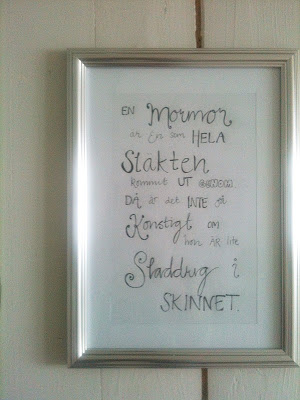 EN Mormor
är En som HELA
Släkten
kommit UT GENOM.
DÅ är det INTE så
Konstigt om
hon ÄR lite
Sladdrig i
SKINNET.